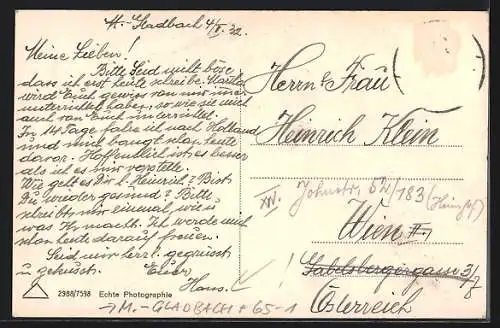 M.-Gladbach 4/V. 32.
Meine Lieben!
Bitte Seid nicht böse,
dass ich erst heute schreibe. Martha
wird Euch gewiss von mir immer
unterrichtet haben, so wie sie mich
auch von Euch unterrichtet.
In 14 Tage fahre ich nach Holland
und mich bangt schon heute
davor. Hoffentlich ist es besser
als ich es mir vorstelle.
Wie geht es Dir l. Heinrich? Bist
Du wieder gesund? Bitte
schreibt mir einmal, wie es
was Ihr macht. Ich würde mich
schon heute darauf freuen.
Seid nur herzl. gegrüsst
u. geküsst. Euer
Hans.
2988/7598 Echte Photographie
Herrn & Frau
Heinrich Klein
XV. Johnstr. 52/183
Wien II.
Gabelsbergergasse 3/8
Österreich
→ M.-GLADBACH + 65-1